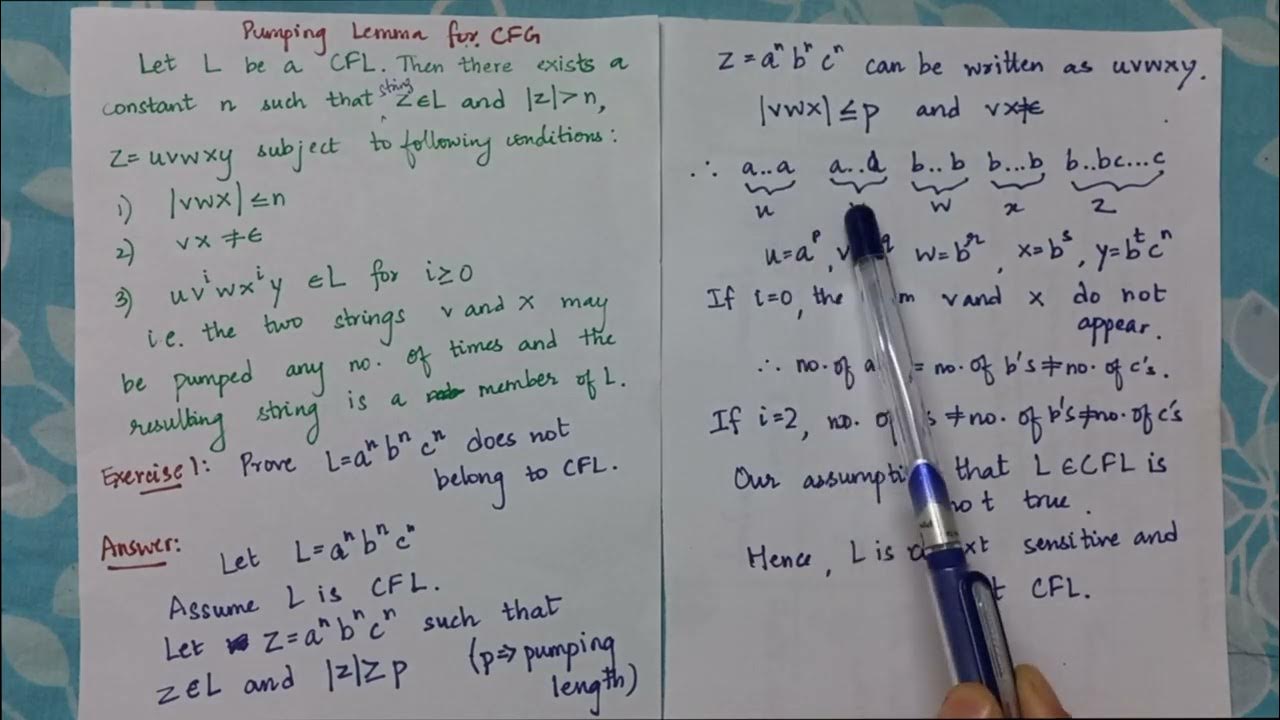 Pumping Lemma for CFG
Let L be a CFL. Then there exists a
constant n such that string z∈L and |z|>n,
z=uvwxy subject to following conditions:
1) |vwx|≤n
2) vx≠ϵ
3) uvⁱwxⁱy ∈L for i≥0
i.e. the two strings v and x may
be pumped any no. of times and the
resulting string is a member of L.
Exercise 1: Prove L=aⁿbⁿcⁿ does not
belong to CFL.
Answer: Let L=aⁿbⁿcⁿ
Assume L is CFL.
Let z=aⁿbⁿcⁿ such that
z∈L and |z|≥p (p⇒pumping
length)
z=aⁿbⁿcⁿ can be written as uvwxy.
|vwx|≤p and vx≠ϵ
∴ a..a a..a b..b b...b b..bc...c
u w x z
u=aᵖ, v w=bʳ, x=bˢ, y=bᵗcⁿ
If i=0, the v and x do not
appear.
∴ no. of a = no. of b's≠no. of c's.
If i=2, no. of s ≠no. of b's≠no. of c's
Our that L∈CFL is
not true.
Hence, L is sensitive and
CFL.